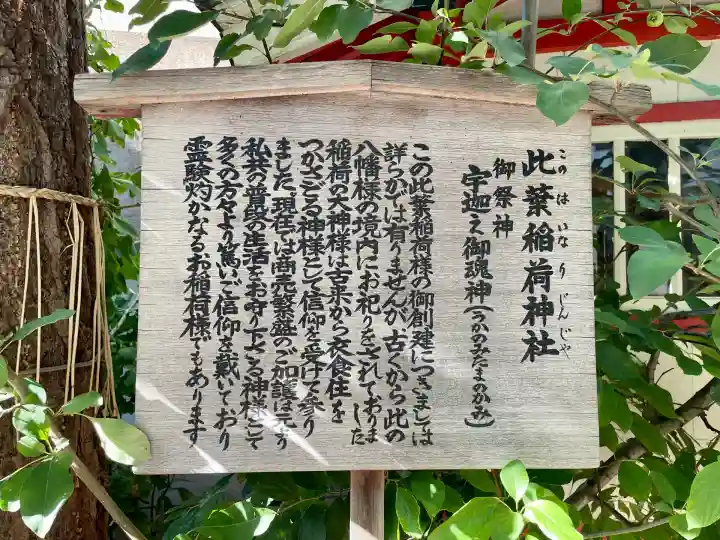 此葉稲荷神社
このはいなりじんじゃ
御祭神
宇迦之御魂神(うかのみたまのかみ)
この此葉稲荷様の御創建につきましては
詳らかでは有りませんが、古くから此の
八幡様の境内にお祀りをされておりました
稲荷の大神様は古来から衣食住を
つかさどる神様として信仰を受けて参り
ました、現在は商売繁盛のご加護は元より
私共の普段の生活をお守り下さる神様として
多くの方々より篤いご信仰を戴いており
霊験灼かなるお稲荷様でもあります